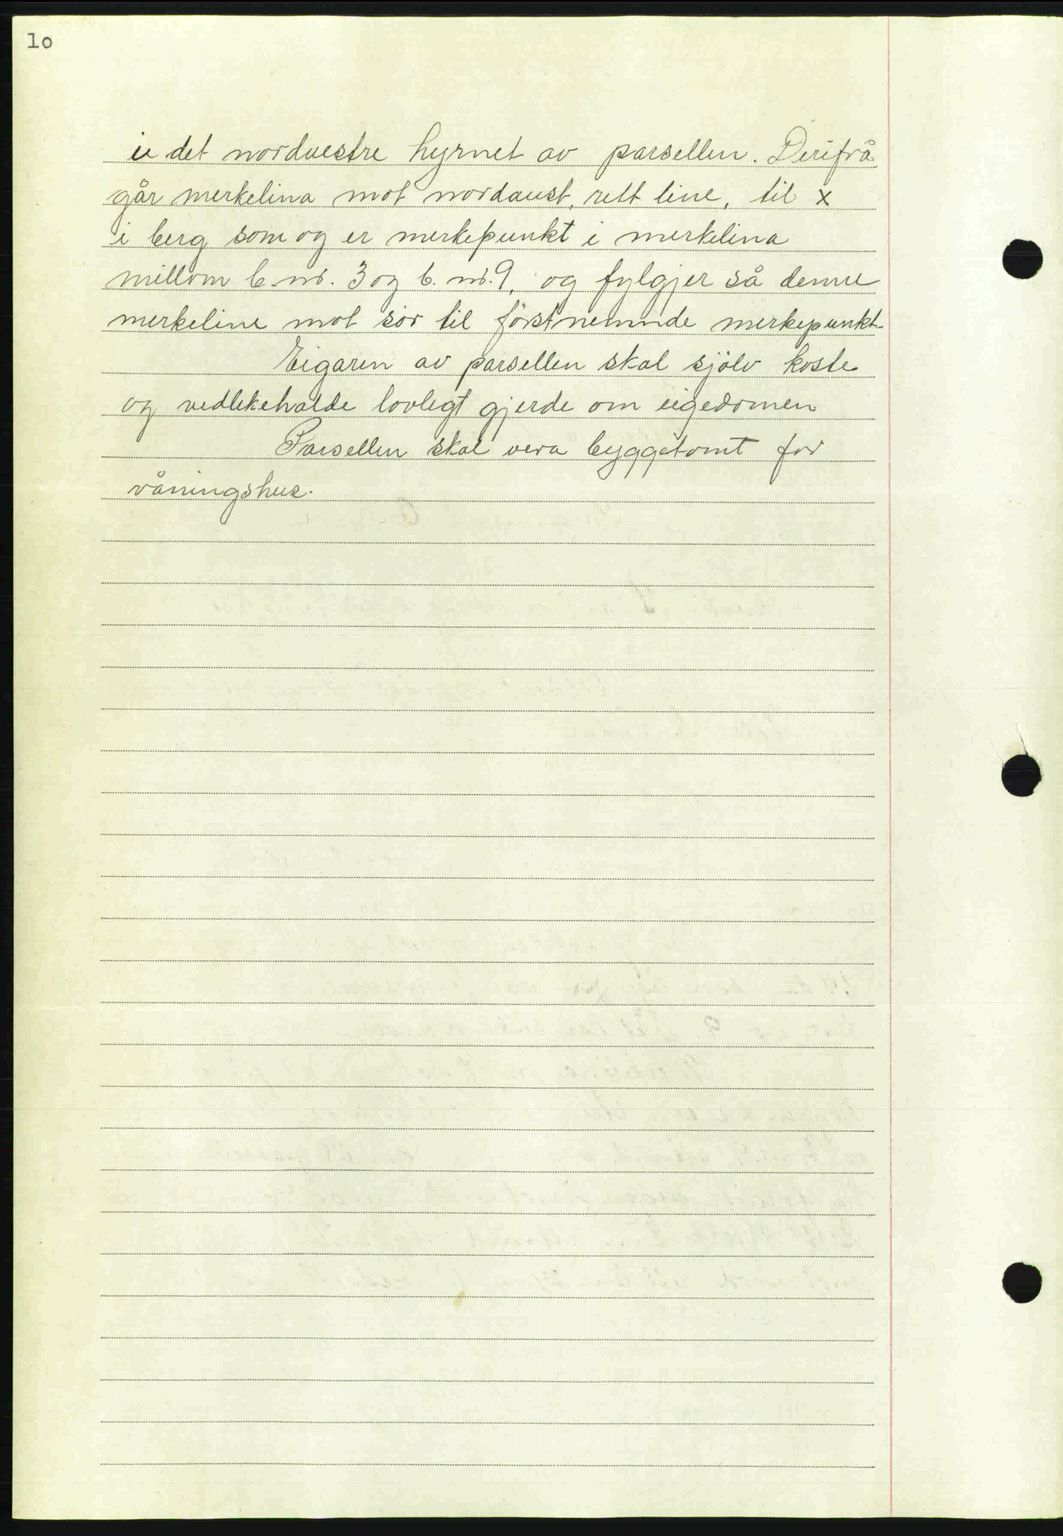 10
i det nordvestre hyrnet av parsellen. Derifrå
går merkelina mot nordaust, rett line, til x
i berg som og er merkepunkt i merkelina
millom b.nr. 3 og b.nr. 9, og fylgjer så denne
merkeline mot sør til førstnemnde merkepunkt.
Eigaren av parsellen skal sjølv koste
og vedlikehalde lovlegt gjerde om eigedomen
Parsellen skal vera byggetomt for
våningshus.